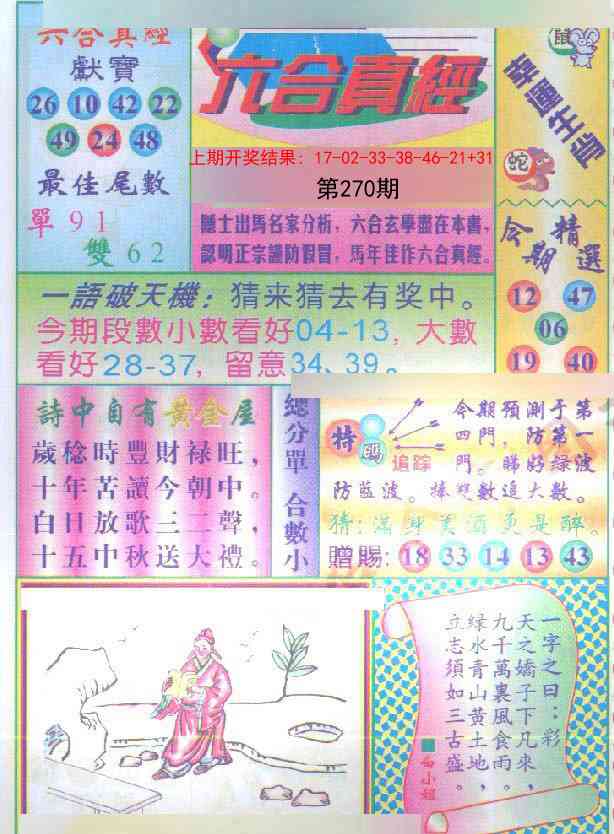 六合真經
獻寶
26 10 42 22
49 24 48
最佳尾數
單 9 1
雙 6 2
六合真經
上期开奖结果：17-02-33-38-46-21+31
第270期
隱士出馬名家分析，六合玄學盡在本書，
認明正宗謹防假冒，馬年佳作六合真經。
鼠
幸運生肖
蛇
今期精選
12 47
06
19 40
一語破天機：猜来猜去有奖中。
今期段數小數看好04-13，大數
看好28-37，留意34、39。
詩中自有黃金屋
歲稔時豐財禄旺，
十年苦讀今朝中。
白日放歌三二聲，
十五中秋送大禮。
總分單
合數小
特碼
追踪
今期預測于第
四門，防第一
門。睇好绿波
防蓝波。捧雙數追大數。
猜：滿身美酒更是醉。
贈賜：18 33 14 13 43
一字之曰：彩
天之嬌子下凡來，
九千萬裏風食雨，
绿水青山黃土地，
立志須如三古盛。
白小姐